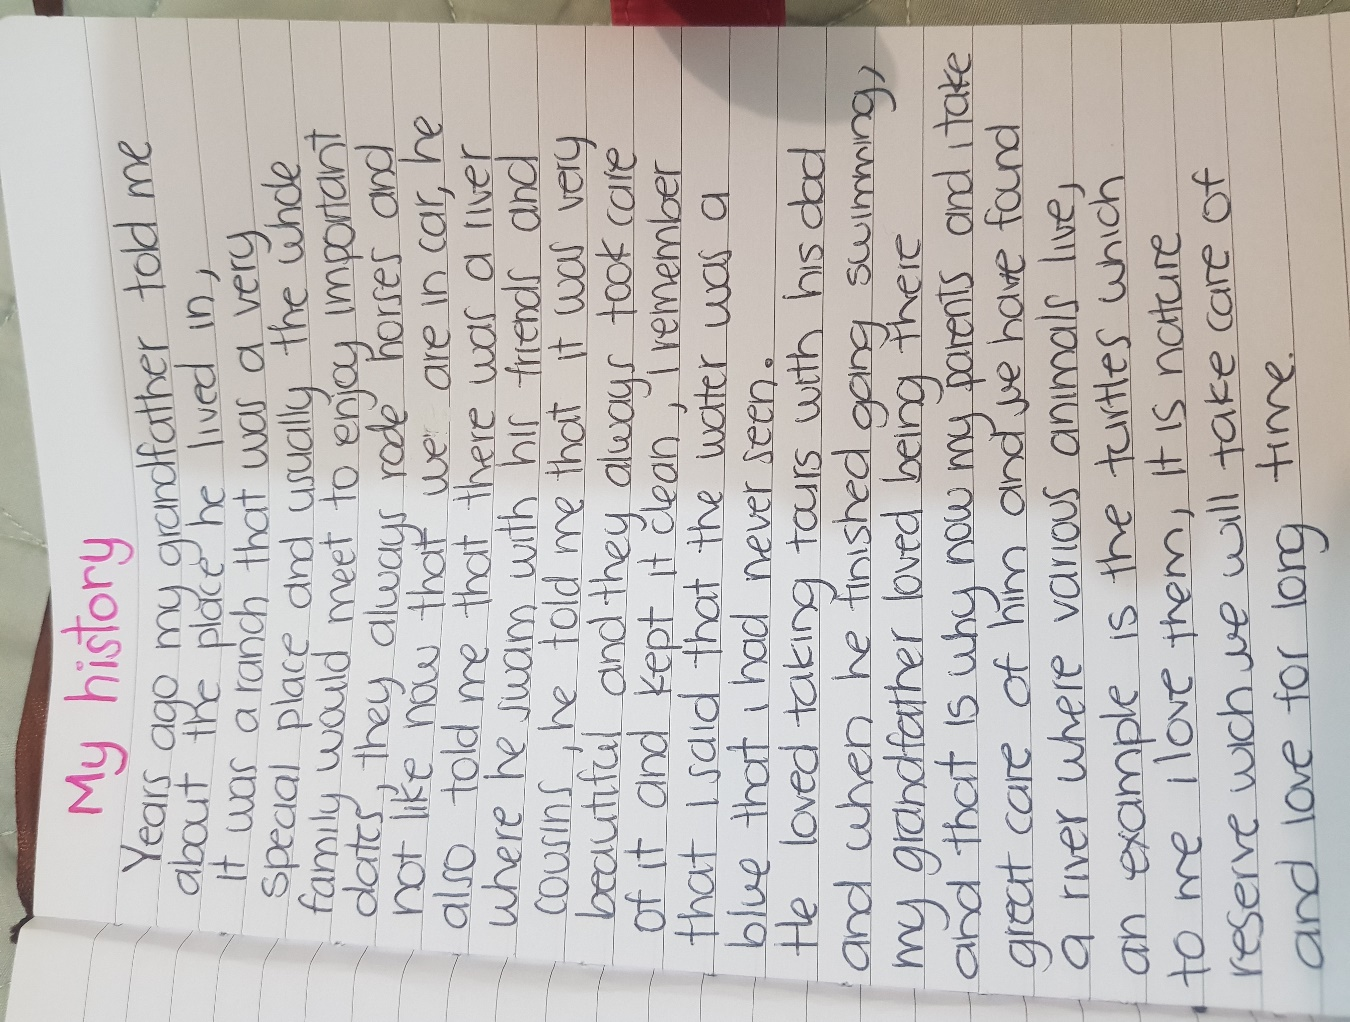 My history
Years ago my grandfather told me
about the place he lived in,
it was a ranch that was a very
special place and usually the whole
family would meet to enjoy important
dates, they always rode horses and
not like now that we are in car, he
also told me that there was a river
where he swam with his friends and
cousins, he told me that it was very
beautiful and they always took care
of it and kept it clean, I remember
that I said that the water was a
blue that i had never seen.
He loved taking tours with his dad
and when he finished going swimming,
my grandfather loved being there
and that is why now my parents and i take
great care of him and we have found
a river where various animals live,
an example is the turtles which
to me i love them, it is nature
reserve wich we will take care of
and love for long time.